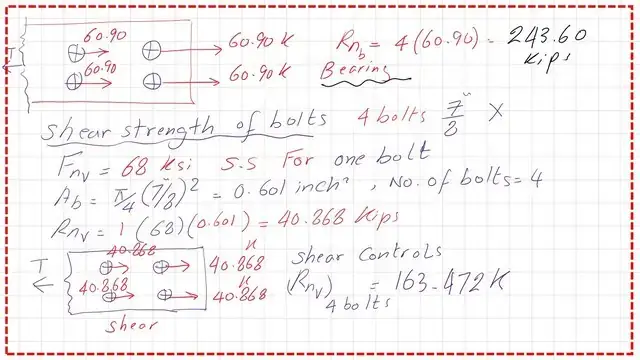 60.90
60.90 K
60.90
60.90 K
T
Rn_b = 4(60.90) = 243.60
Kips
Bearing
shear strength of bolts 4 bolts 7/8" X
Fnv = 68 Ksi S.S For one bolt
Ab = π/4 (7/8)² = 0.601 inch², No. of bolts = 4
Rnv = 1 (68)(0.601) = 40.868 Kips
T
40.868
K
40.868
40.868
K
40.868
shear
shear Controls
(Rnv) 4 bolts = 163.472 K